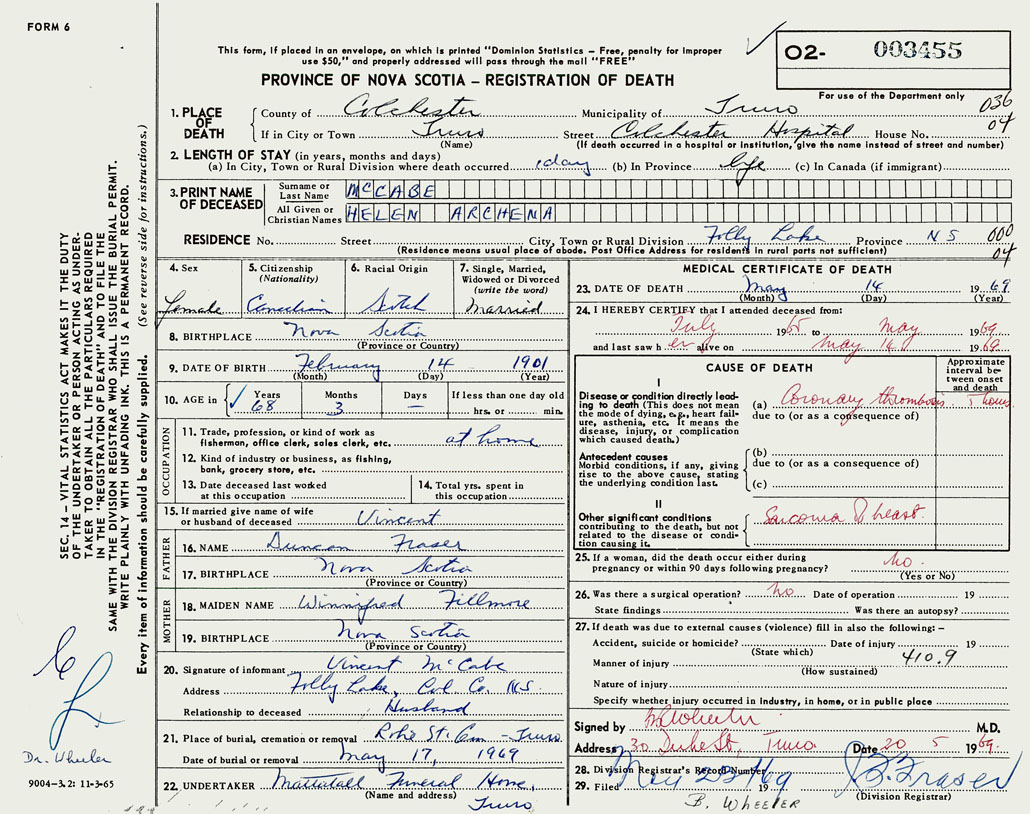 FORM 6
This form, if placed in an envelope, on which is printed "Dominion Statistics – Free, penalty for improper
use $50," and properly addressed will pass through the mail "FREE"
O2- 003455
PROVINCE OF NOVA SCOTIA – REGISTRATION OF DEATH
For use of the Department only
1. PLACE OF DEATH
County of Colchester Municipality of Truro 036
If in City or Town Truro Street Colchester Hospital House No. 04
(Name) (If death occurred in a hospital or institution, give the name instead of street and number)
2. LENGTH OF STAY (in years, months and days)
(a) In City, Town or Rural Division where death occurred 1 day (b) In Province life (c) In Canada (if immigrant)
3. PRINT NAME OF DECEASED
Surname or Last Name McCABE
All Given or Christian Names HELEN ARCHENA
RESIDENCE No. Street City, Town or Rural Division Folly Lake Province NS 000
(Residence means usual place of abode. Post Office Address for residents in rural parts not sufficient) 04
4. Sex Female
5. Citizenship (Nationality) Canadian
6. Racial Origin Scotch
7. Single, Married, Widowed or Divorced (write the word) Married
8. BIRTHPLACE Nova Scotia
(Province or Country)
9. DATE OF BIRTH February 14 1901
(Month) (Day) (Year)
10. AGE in Years 68 Months 3 Days – If less than one day old hrs. or min.
OCCUPATION
11. Trade, profession, or kind of work as
fisherman, office clerk, sales clerk, etc. at home
12. Kind of industry or business, as fishing,
bank, grocery store, etc.
13. Date deceased last worked
at this occupation
14. Total yrs. spent in
this occupation
15. If married give name of wife
or husband of deceased Vincent
FATHER
16. NAME Duncan Fraser
17. BIRTHPLACE Nova Scotia
(Province or Country)
MOTHER
18. MAIDEN NAME Winnifred Fillmore
19. BIRTHPLACE Nova Scotia
(Province or Country)
20. Signature of informant Vincent McCabe
Address Folly Lake, Col. Co. N.S.
Relationship to deceased Husband
21. Place of burial, cremation or removal Robie St. Cem – Truro
Date of burial or removal May 17, 1969
22. UNDERTAKER Mattatall Funeral Home,
(Name and address) Truro
MEDICAL CERTIFICATE OF DEATH
23. DATE OF DEATH May 14 1969
(Month) (Day) (Year)
24. I HEREBY CERTIFY that I attended deceased from:
July 1965 to May 1969
and last saw h er alive on May 14 1969
CAUSE OF DEATH
Approximate interval between onset and death
I
Disease or condition directly leading to death (This does not mean the mode of dying, e.g., heart failure, asthenia, etc. It means the disease, injury, or complication which caused death.)
(a) Coronary thrombosis 5 hours
due to (or as a consequence of)
Antecedent causes
Morbid conditions, if any, giving rise to the above cause, stating the underlying condition last.
(b)
due to (or as a consequence of)
(c)
II
Other significant conditions contributing to the death, but not related to the disease or condition causing it.
Sarcoma
25. If a woman, did the death occur either during
pregnancy or within 90 days following pregnancy? No
(Yes or No)
26. Was there a surgical operation? No Date of operation 19
State findings Was there an autopsy?
27. If death was due to external causes (violence) fill in also the following: –
Accident, suicide or homicide? Date of injury 19
(State which)
Manner of injury 410.9
(How sustained)
Nature of injury
Specify whether injury occurred in Industry, in home, or in public place
Signed by M.D.
Address 30 Duke St, Truro Date 20 5 1969.
28. Division Registrar's Record Number
29. Filed May 1969
(Division Registrar) Fraser
B. WHEELER
SEC. 14 – VITAL STATISTICS ACT MAKES IT THE DUTY
OF THE UNDERTAKER OR PERSON ACTING AS UNDER-
TAKER TO OBTAIN ALL THE PARTICULARS REQUIRED
IN THE "REGISTRATION OF DEATH" AND TO FILE THE
SAME WITH THE DIVISION REGISTRAR WHO SHALL ISSUE THE BURIAL PERMIT.
WRITE PLAINLY WITH UNFADING INK. THIS IS A PERMANENT RECORD.
Every item of information should be carefully supplied. (See reverse side for instructions.)
Dr. Wheeler
9004-3.2: 11-3-65